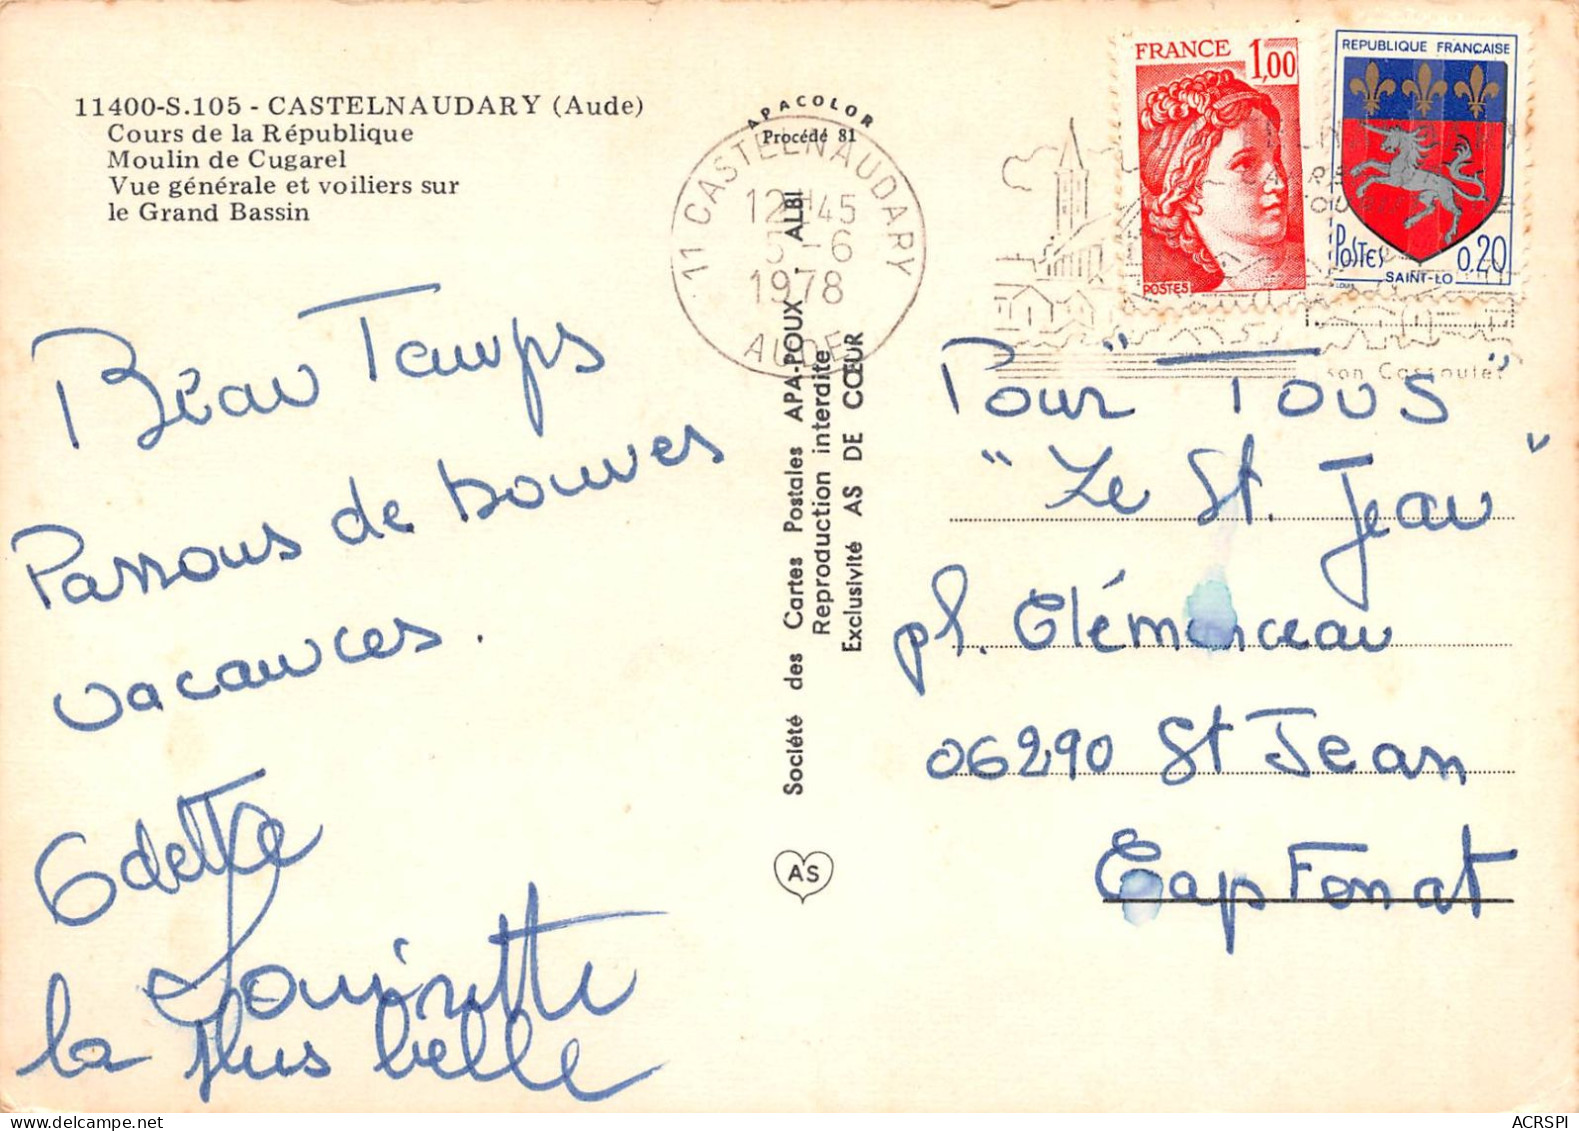 11400-S.105 - CASTELNAUDARY (Aude)
Cours de la République
Moulin de Cugarel
Vue générale et voiliers sur
le Grand Bassin
Beau Temps
Passons de bonnes
vacances.
Odette
Louisette
la plus belle
APACOLOR
Procédé 81
11 CASTELNAUDARY
12H45
5-6
1978
AUDE
Société des Cartes Postales APA-POUX - ALBI
Reproduction interdite
Exclusivité AS DE CŒUR
AS
FRANCE 1,00
POSTES
REPUBLIQUE FRANÇAISE
POSTES 0,20
SAINT-LO
son Cassoulet
Pour "TOUS"
"Le St. Jean"
pl. Clémenceau
06290 St Jean
Cap Ferrat
ACRSPI